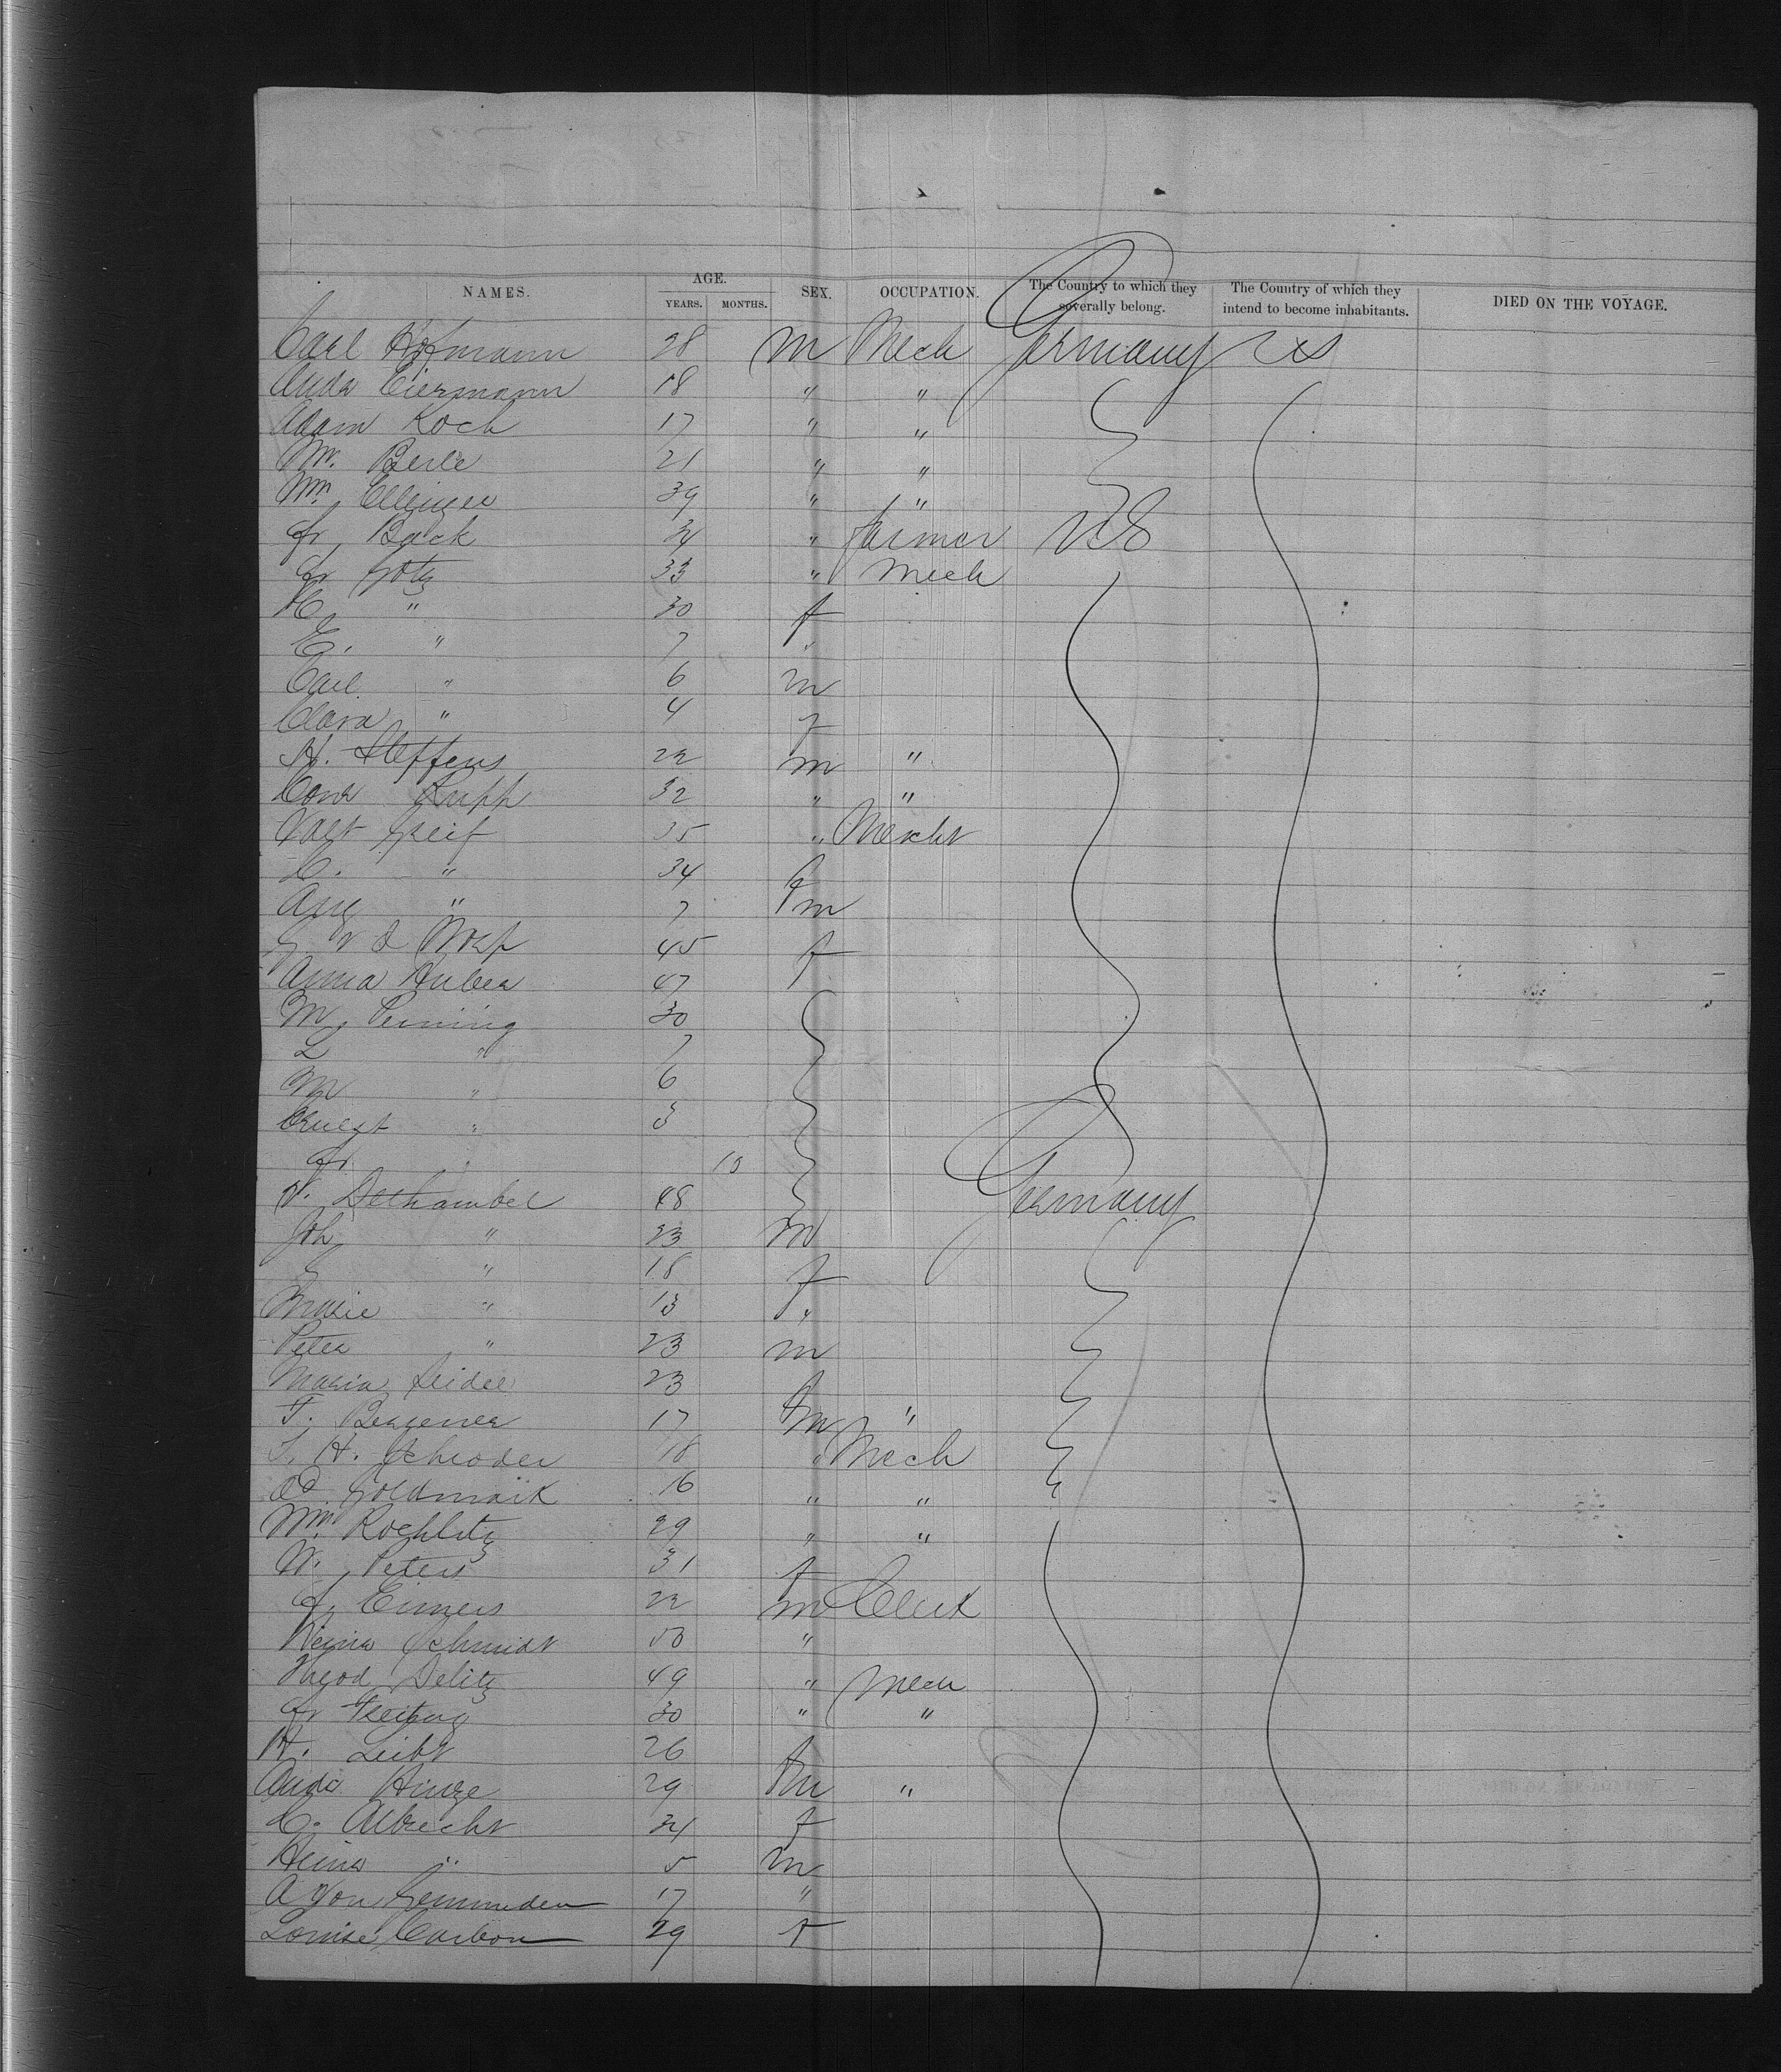 NAMES. AGE. YEARS. MONTHS. SEX. OCCUPATION. The Country to which they severally belong. The Country of which they intend to become inhabitants. DIED ON THE VOYAGE.
Carl Hofmann 28 m Mech Germany US
Andr Eiermann 18 " "
Adam Koch 17 " "
Berle 21 " "
Wm. Ellinger 39 " "
Fr. Back 34 " Farmer US
Fr Götz 33 " Mech
C. " 30 f
E. " 7 "
Carl " 6 m
Clara " 4 f
H. Steffens 22 m "
Conr Rupp 32 " "
Valt Greif 35 " Mercht
C. " 34 f
Aug " 7 m
45 f
Anna Huber 47
M. Penning 30
L " 7
M " 6
Ernest " 3
Fr. " 10
V. Dechamber 48 Germany
Joh " 23 m
G " 18 f
Marie " 13 f "
Peter " 23 m
Maria Seidel 23 f
F. Bergener 17 m "
H. Schroder 18 " Mech
Ad. Goldmark 16 " "
Wm. Rochlitz 29 " "
W. Peters 31 f
Fr. Eimers 22 m Clerk
Schmidt "
Delitz 49 " Mech
Fr Freitag 30 " "
H. Leibr 26 f
Andr Hinze 29 m "
C. Albrecht 34 f
Heinr " 5 m
A von Gemmeden 17 "
Louise Carbon 29 f